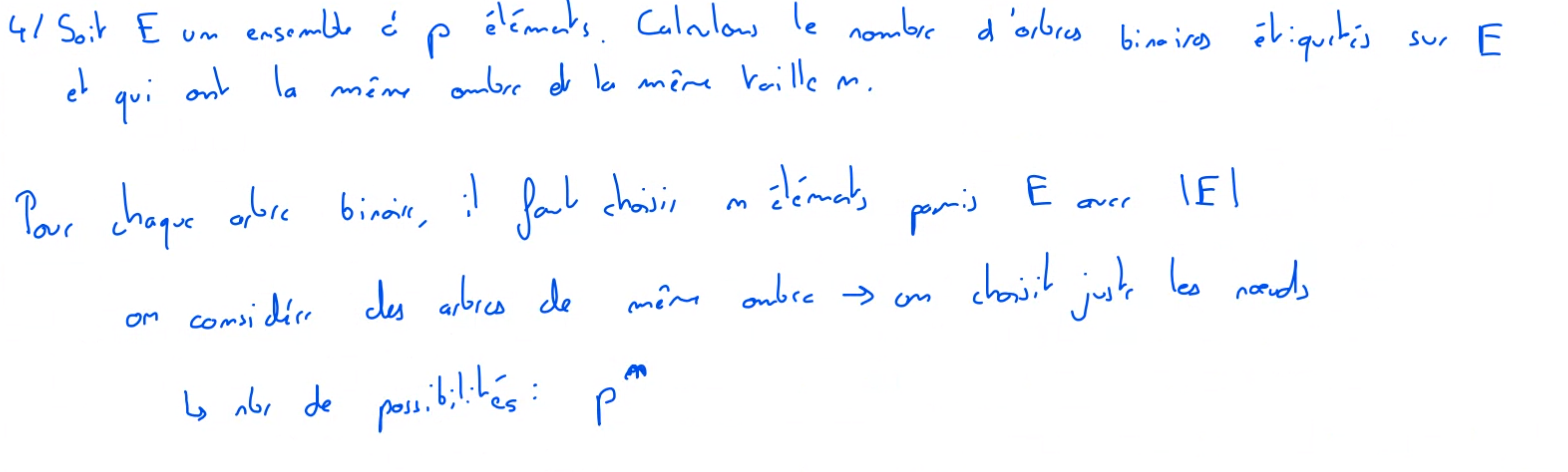 4/ Soit E un ensemble à p éléments. Calculons le nombre d'arbres binaires étiquetés sur E
et qui ont la même ombre et la même taille n.
Pour chaque arbre binaire, il faut choisir n éléments parmis E avec |E|
on considère des arbres de même ombre → on choisit juste les nœuds
↳ nbr de possibilités : pⁿ